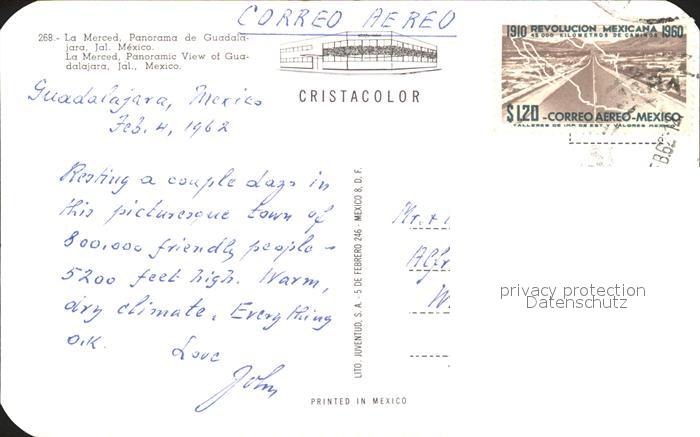 CORREO AEREO
268.- La Merced, Panorama de Guadala-
jara, Jal. México.
La Merced, Panoramic View of Gua-
dalajara, Jal., Mexico.
CRISTACOLOR
1910 REVOLUCION MEXICANA 1960
45 000 KILOMETROS DE CAMINOS
$1.20 -CORREO AEREO-MEXICO
TALLERES DE IMP. DE EST. Y VALORES MEXICO
Guadalajara, Mexico
Feb. 4, 1962
Resting a couple days in
this picturesque town of
800,000 friendly people -
5200 feet high. Warm,
dry climate. Everything
O.K. Love
John
LITO. JUVENTUD, S. A. - 5 DE FEBRERO 246 - MEXICO 8, D. F.
Mr. +
Alfr
W
privacy protection
Datenschutz
PRINTED IN MEXICO